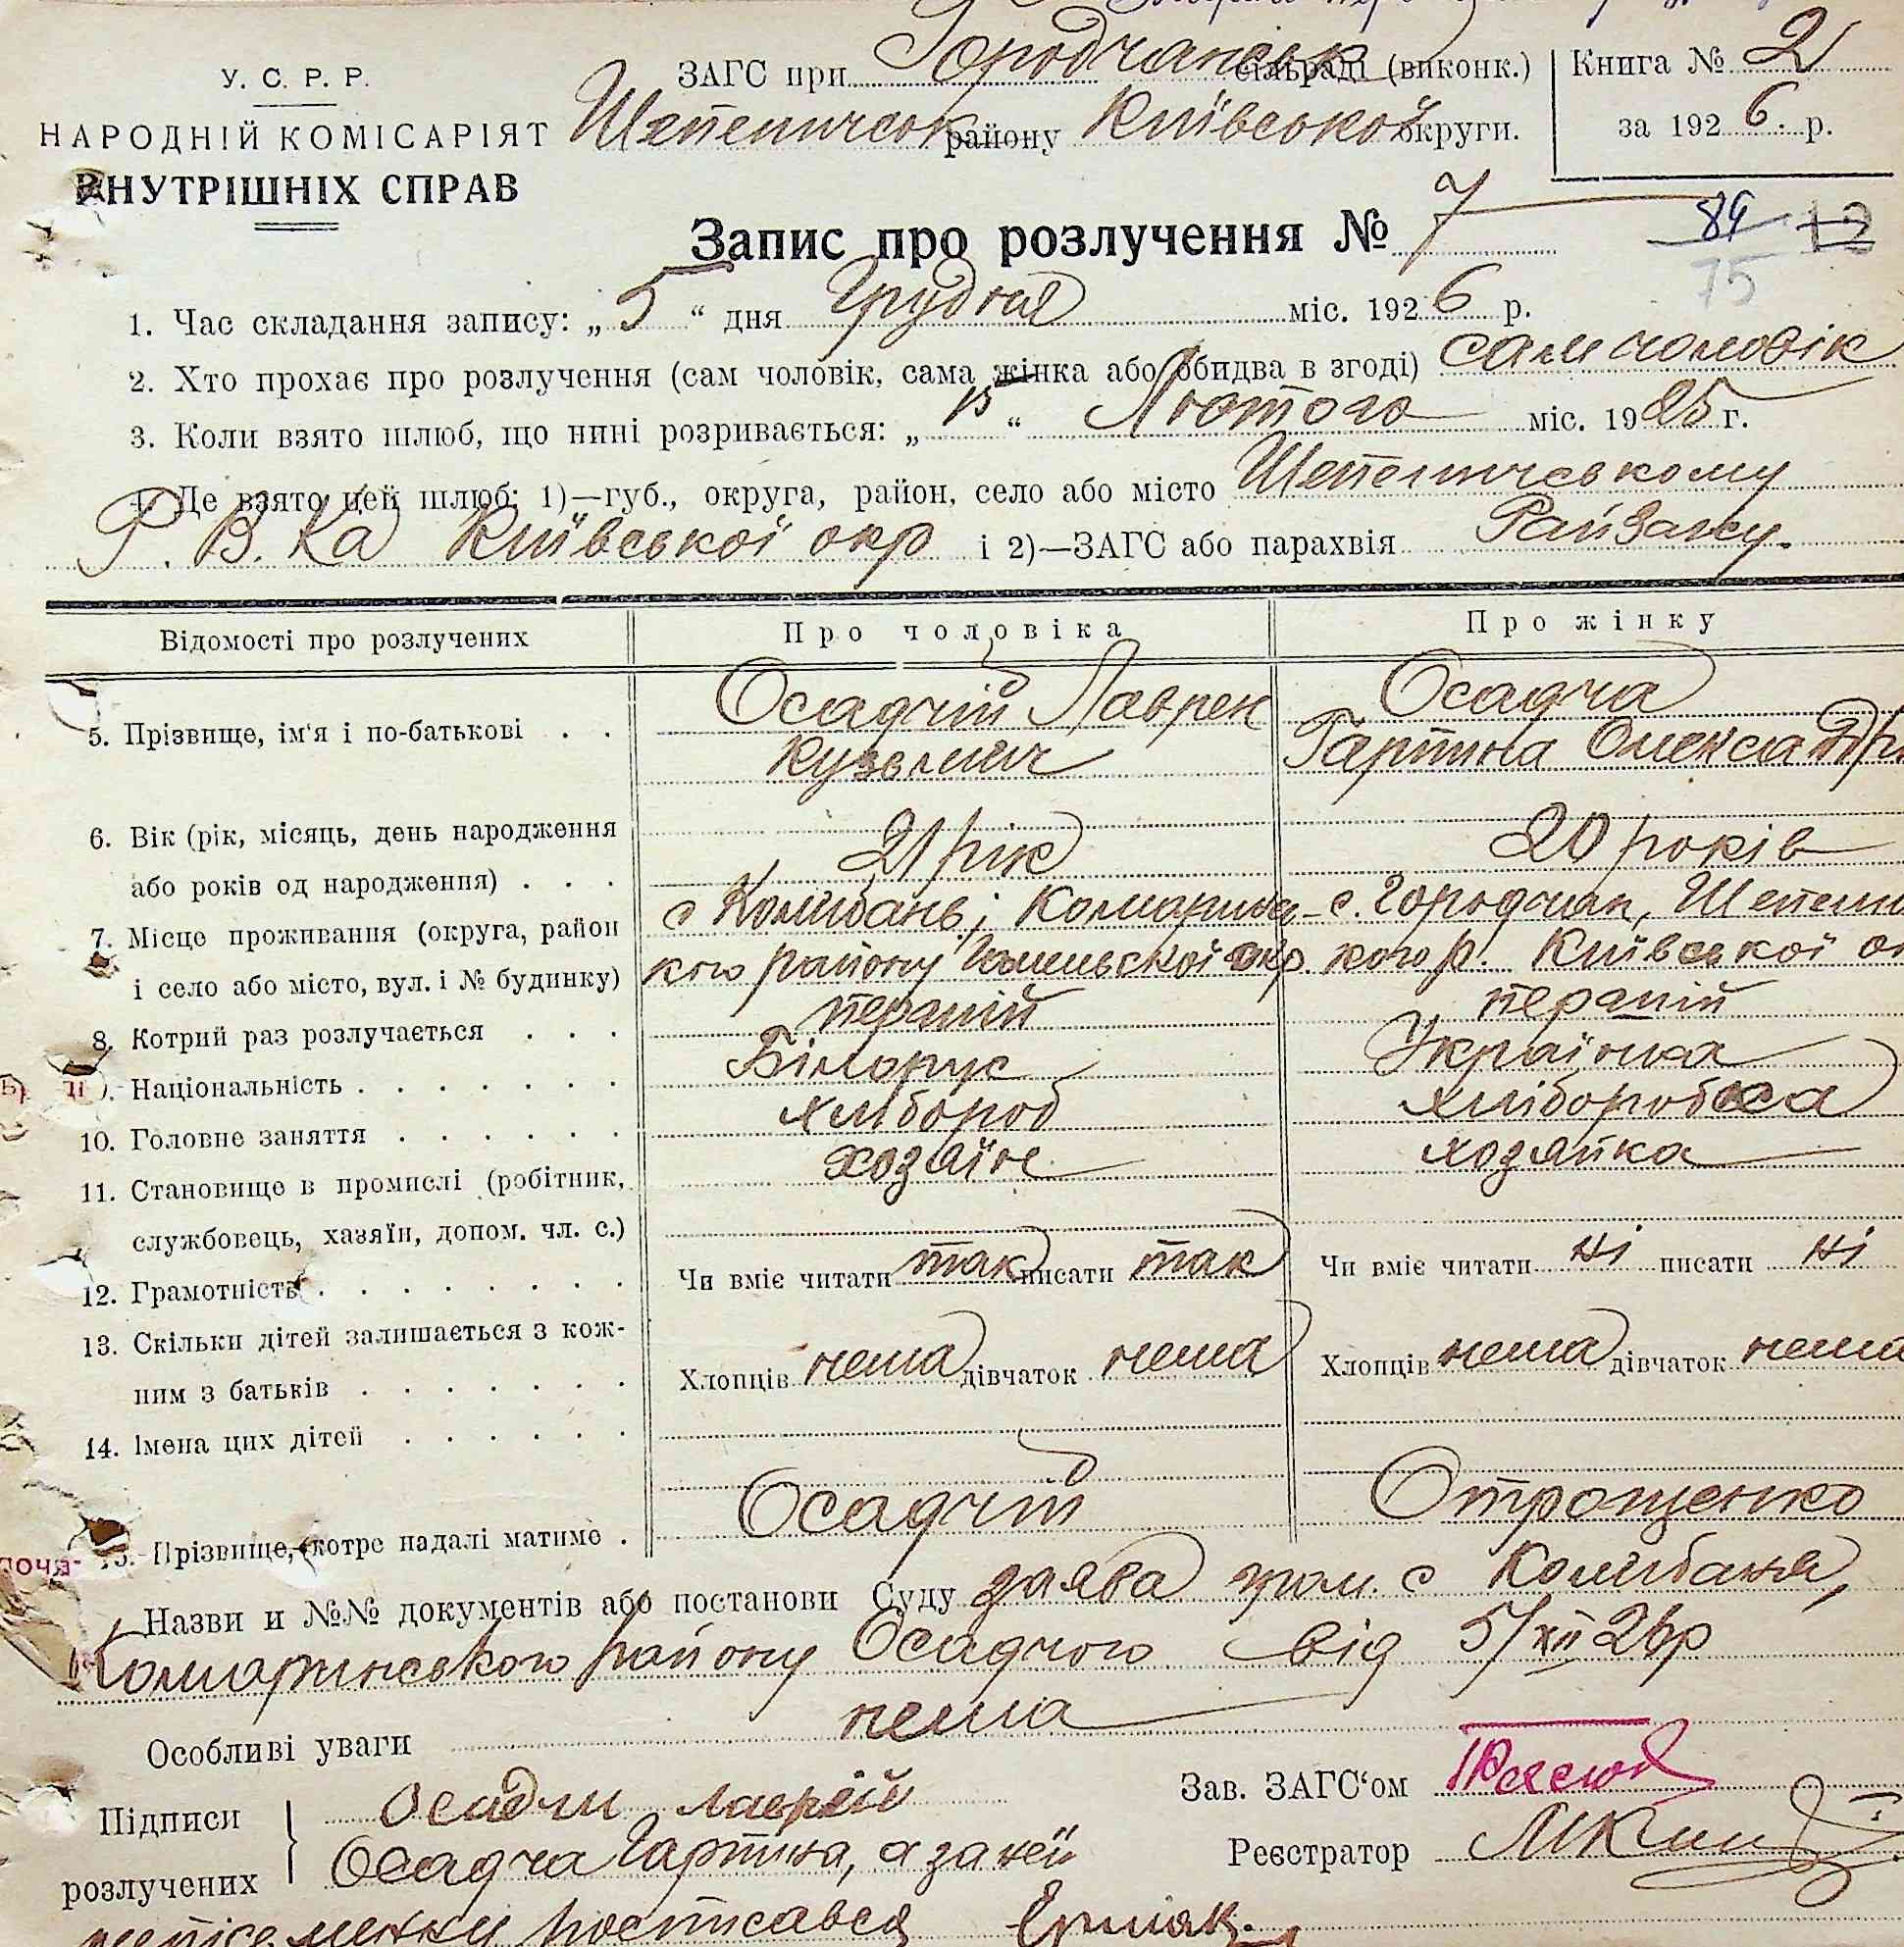 У. С. Р. Р.
НАРОДНІЙ КОМІСАРІЯТ
ВНУТРІШНІХ СПРАВ
ЗАГС при Городчанськ сільраді (виконк.)
Шепеличськ району Київської округи.
Книга № 2
за 1926. р.
Запис про розлучення № 7
84 12
75
1. Час складання запису: „5“ дня Грудня міс. 1926 р.
2. Хто прохає про розлучення (сам чоловік, сама жінка або обидва в згоді) сам чоловік
3. Коли взято шлюб, що нині розривається: „15“ Лютого міс. 1925 г.
4. Де взято цей шлюб: 1)—губ., округа, район, село або місто Шепеличському
Р. В. Ка Київської окр і 2)—ЗАГС або парахвія РайЗагсу.
Відомості про розлучених Про чоловіка Про жінку
5. Прізвище, ім'я і по-батькові . . Осадчий Лаврен Осадча
Кузьмич Гарпина Олександр
6. Вік (рік, місяць, день народження
або років од народження) . . . 21 рік 20 років
7. Місце проживання (округа, район с Колибань, Комаринс- с. Городчан, Шепелич
і село або місто, вул. і № будинку) кого району Гомельської окр. кого р. Київської ок
8. Котрий раз розлучається . . . перший перший
9. Національність . . . . . . . Білорус Українка
10. Головне заняття . . . . . . хлібороб хліборобка
11. Становище в промислі (робітник, хозяїн хозяйка
службовець, хазяїн, допом. чл. с.)
12. Грамотність . . . . . . . . Чи вміє читати так писати так Чи вміє читати ні писати ні
13. Скільки дітей залишається з кож-
ним з батьків . . . . . . . Хлопців нема дівчаток нема Хлопців нема дівчаток нема
14. Імена цих дітей . . . . . .
15. Прізвище, котре надалі матиме . Осадчий Отрощенко
Назви и №№ документів або постанови Суду заява гром. с Колибаня,
Комаринського району Осадчого від 5/XII 26р
Особливі уваги нема
Зав. ЗАГС‘ом
Підписи
розлучених
Осадчи лаврен
Осадча Гарпина, а за неї
Реєстратор
росписався